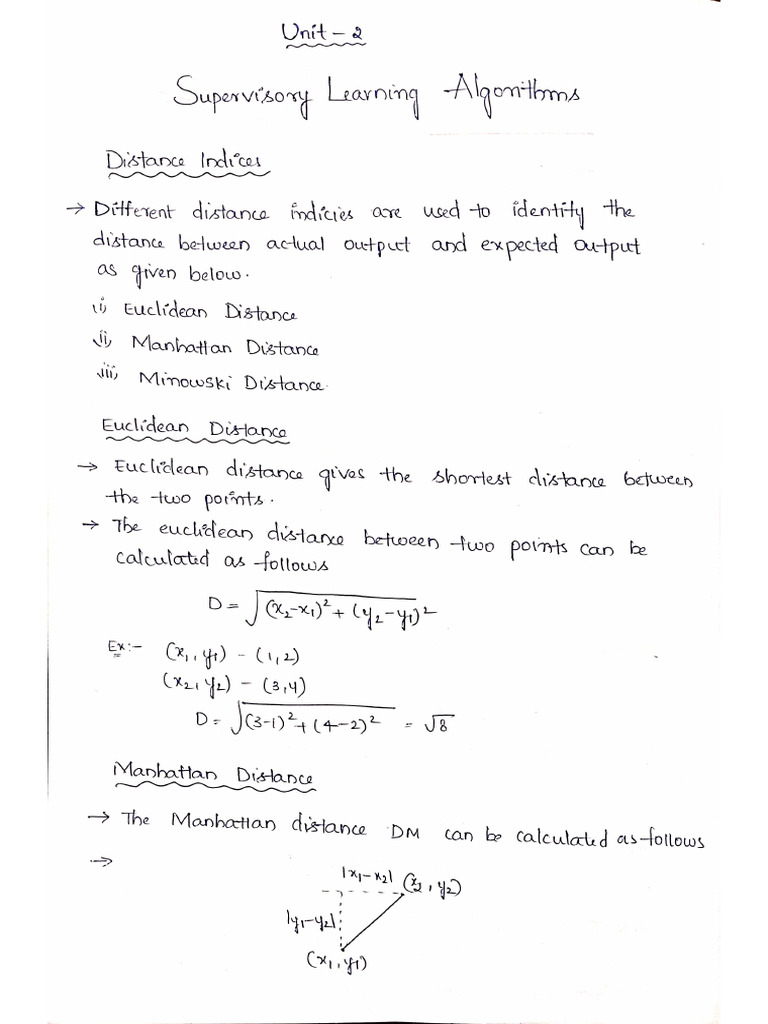 Unit - 2
Supervisory Learning Algorithms
Distance Indices
→ Different distance indicies are used to identify the
distance between actual output and expected output
as given below.
i) Euclidean Distance
ii) Manhattan Distance
iii) Minowski Distance.
Euclidean Distance
→ Euclidean distance gives the shortest distance between
the two points.
→ The euclidean distance between two points can be
calculated as follows
D = √(x₂-x₁)² + (y₂-y₁)²
Ex:- (x₁, y₁) - (1,2)
(x₂, y₂) - (3,4)
D = √(3-1)² + (4-2)² = √8
Manhattan Distance
→ The Manhattan distance DM can be calculated as follows
→
|x₁-x₂| (x₂, y₂)
|y₁-y₂|
(x₁, y₁)